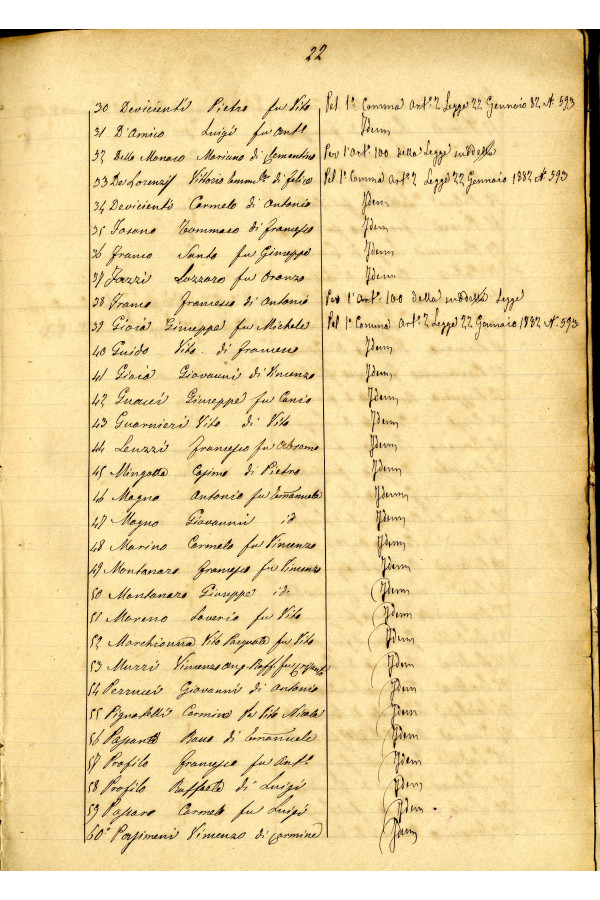 22
30 Devicienti Pietro fu Vito Pel 1º Comma Artº 2 Legge 22 Gennaio 82 Nº 593
31 D'Amico Luigi fu Antº Idem
32 Della Monaco Mariano di Clementino Per l'Artº 100 della Legge suddetta
33 De Lorenzis Vittorio Emmle di Felice Pel 1º Comma Artº 2 Legge 22 Gennaio 1882 Nº 593
34 Devicienti Carmelo di Antonio Idem
35 Fasano Tommaso di Francesco Idem
36 Franco Santo fu Giuseppe Idem
37 Fazzi Lazzaro fu Oronzo Idem
38 Franco Francesco di Antonio Per l'Artº 100 della suddetta Legge
39 Gioia Giuseppe fu Michele Pel 1º Comma Artº 2 Legge 22 Gennaio 1882 Nº 593
40 Guido Vito di Francesco Idem
41 Gioia Giovanni di Vincenzo Idem
42 Guacci Giuseppe fu Canio Idem
43 Guarnieri Vito di Vito Idem
44 Leuzzi Francesco fu Abramo Idem
45 Mingolla Cosimo di Pietro Idem
46 Magno Antonio fu Emanuele Idem
47 Magno Giovanni id Idem
48 Marino Carmelo fu Vincenzo Idem
49 Montanaro Francesco fu Vincenzo Idem
50 Montanaro Giuseppe id: Idem
51 Moreno Saverio fu Vito Idem
52 Marchionna Vito Pasquale fu Vito Idem
53 Muzzi Vincenzo Ang Raff. fu Idem
54 Perrucci Giovanni di Antonio Idem
55 Pignatelli Carmine fu Vito Nicola Idem
56 Passante di Emanuele Idem
57 Profilo Francesco fu Antº Idem
58 Profilo Raffaele di Luigi Idem
59 Passaro Carmelo fu Luigi Idem
60º Persimeni Vincenzo di Carmine Idem